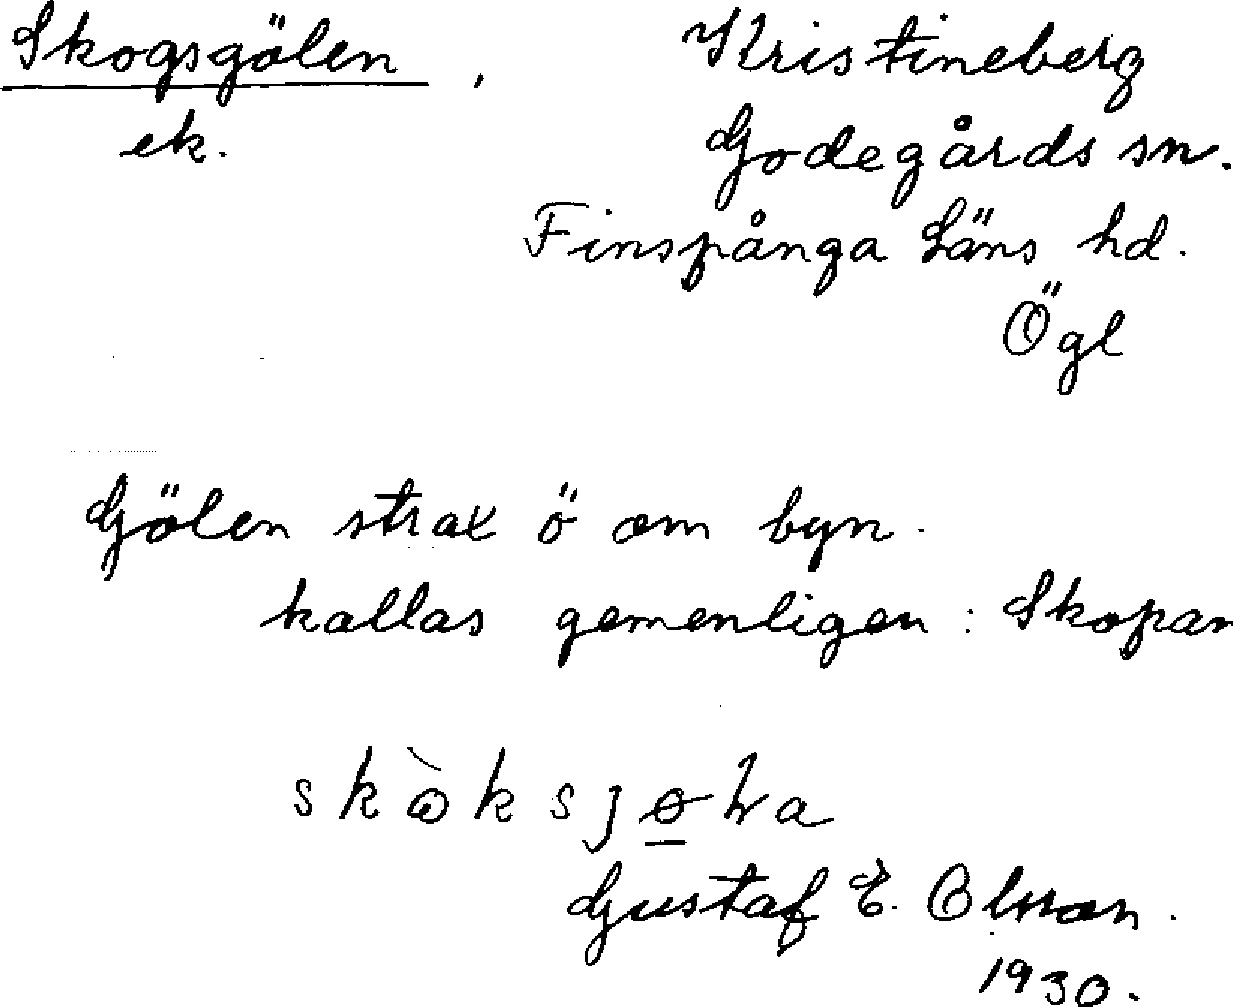 Skogsgölen, Kristineberg
ek. Godegårds sn.
Finspånga Läns hd.
Ögl
Gölen strax ö om byn.
kallas gemenligen: Skopan
Gustaf E. Olsson.
1930.